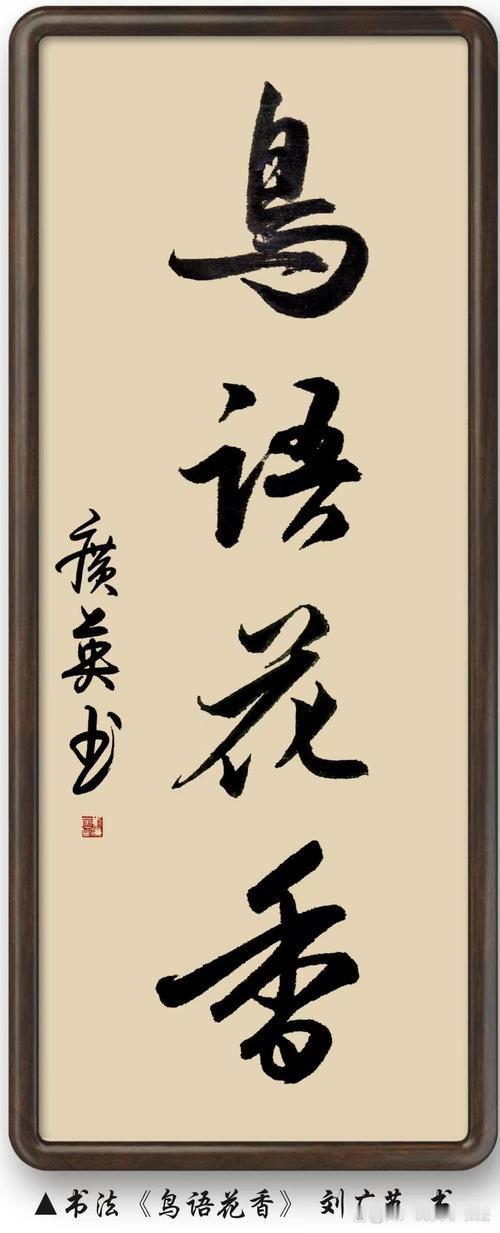 鸟语花香
廣英书
▲书法《鸟语花香》 刘广英 书